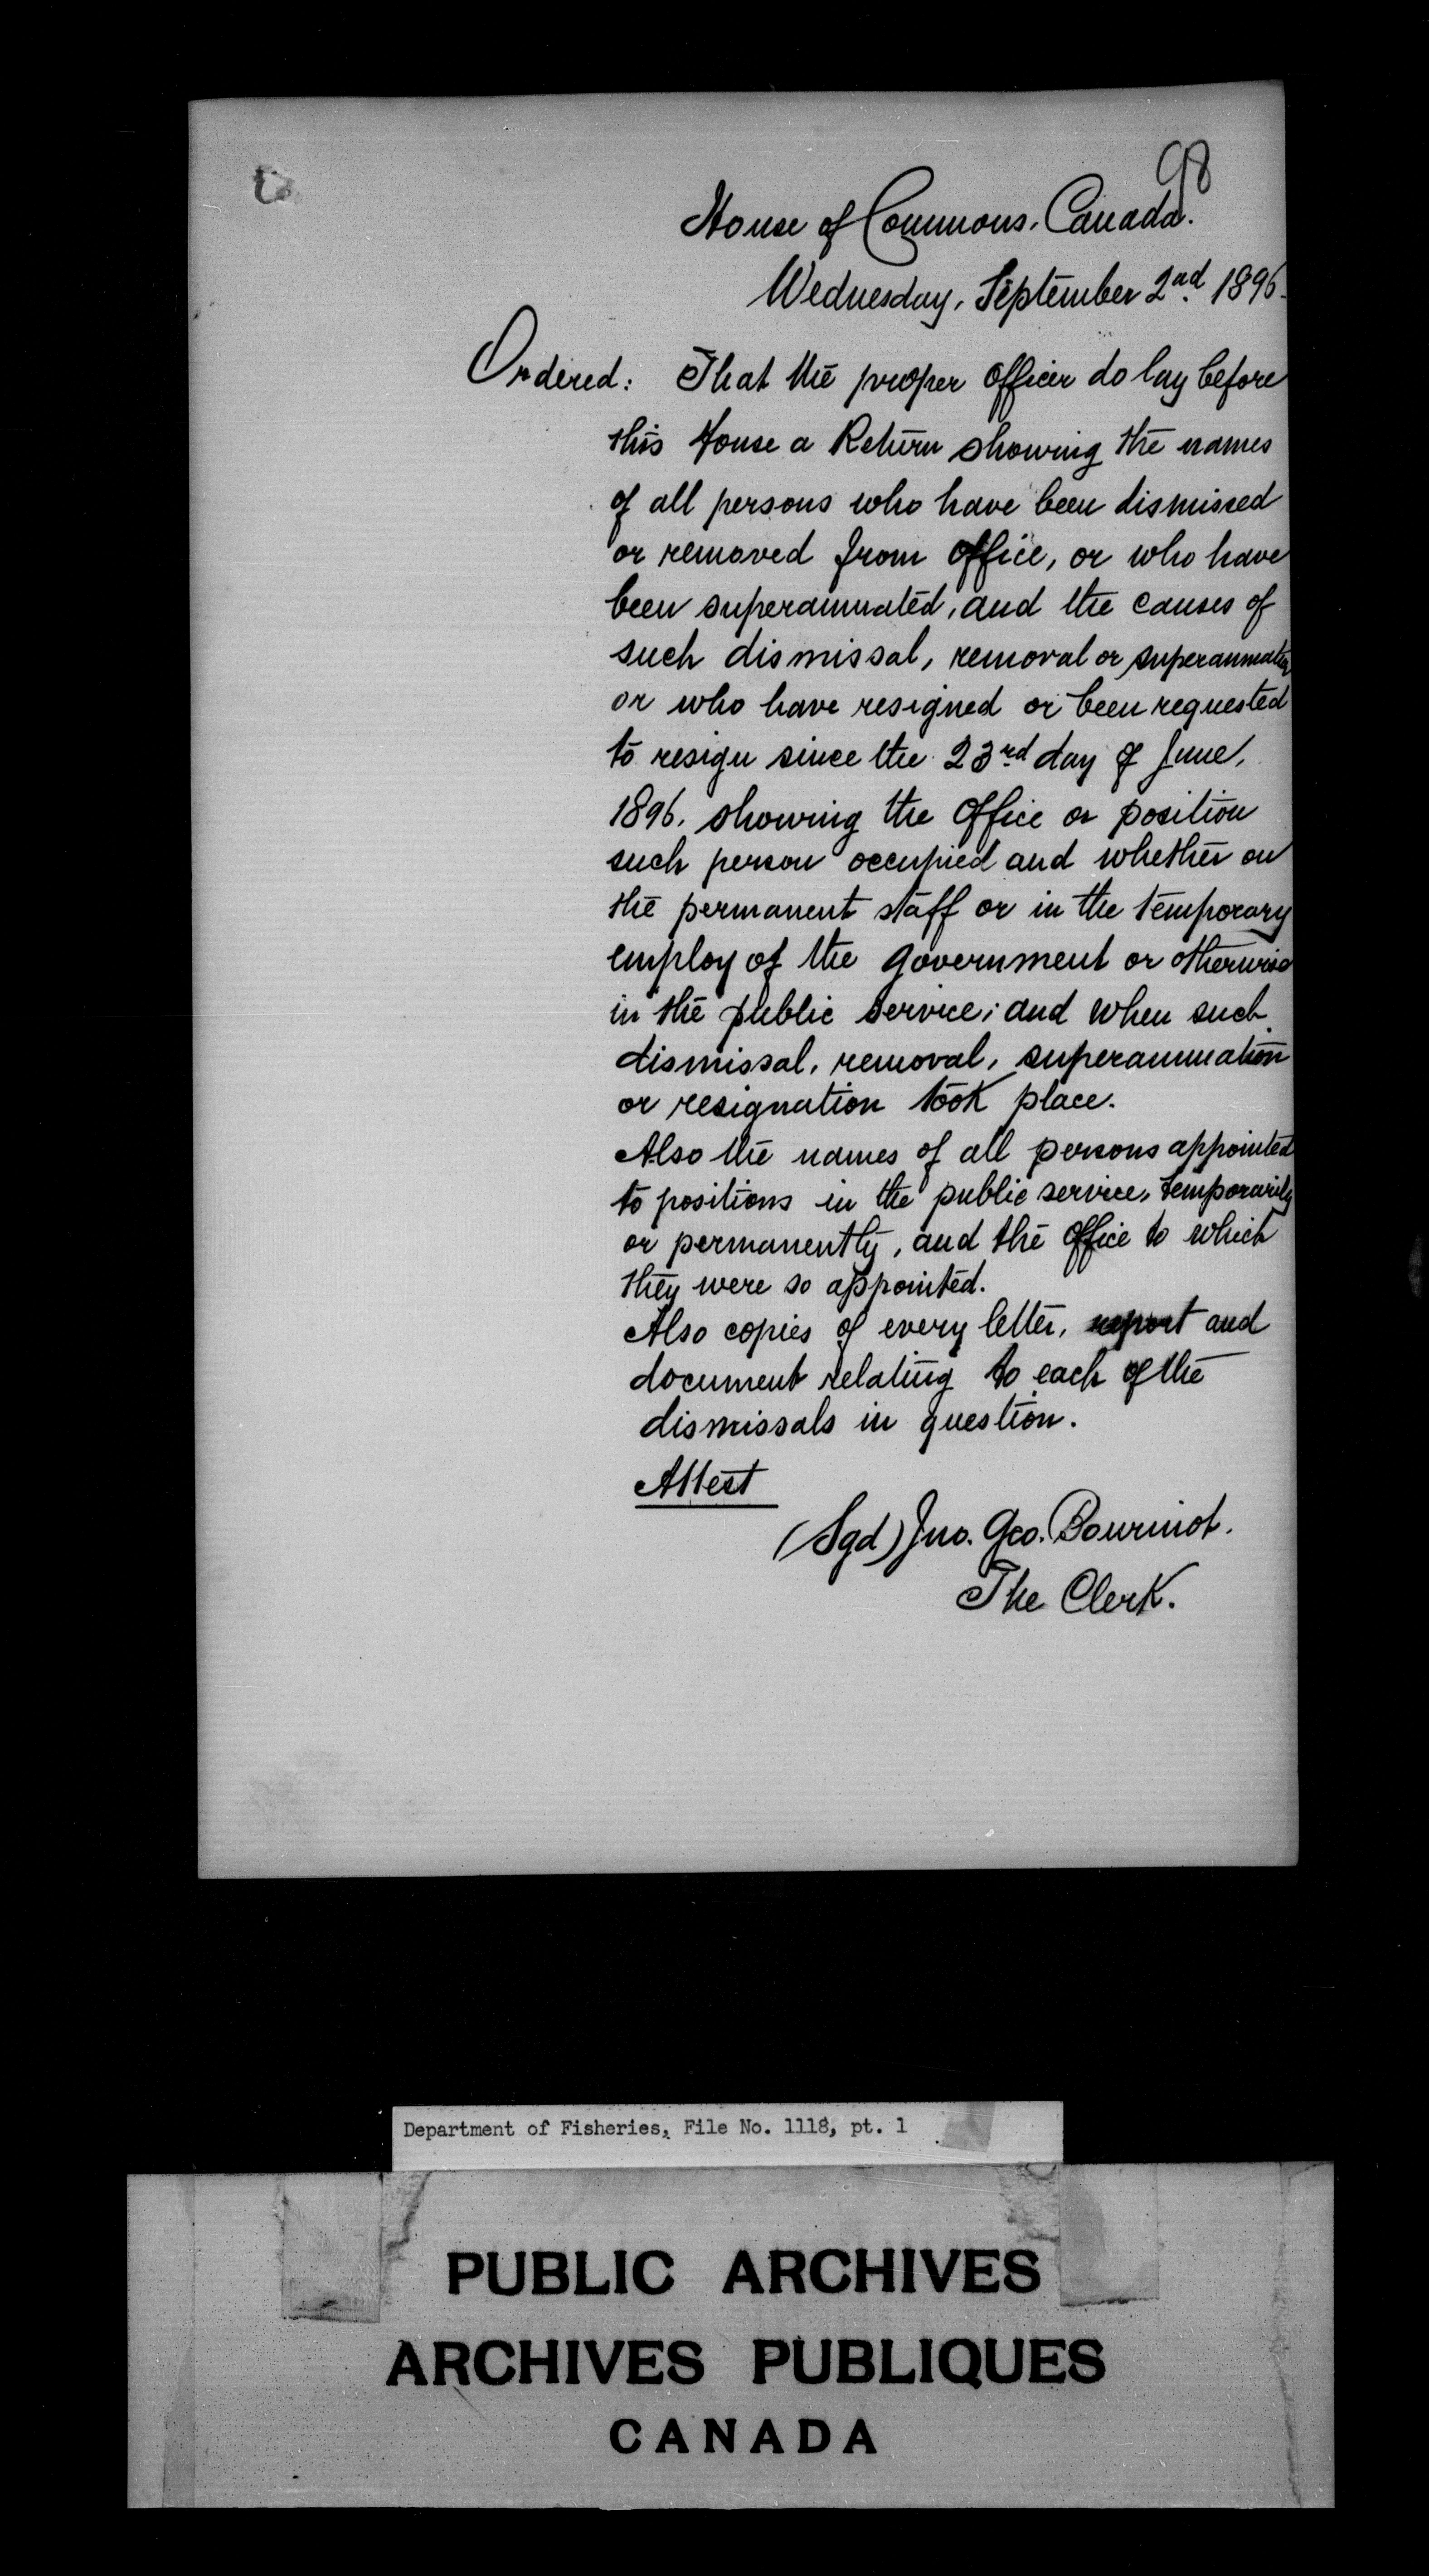 98
House of Commons, Canada.
Wednesday, September 2nd 1896.
Ordered: That the proper officer do lay before
this House a Return showing the names
of all persons who have been dismissed
or removed from office, or who have
been superannuated, and the causes of
such dismissal, removal or superannuation
or who have resigned or been requested
to resign since the 23rd day of June,
1896, showing the office or position
such person occupied and whether on
the permanent staff or in the temporary
employ of the government or otherwise
in the public service; and when such
dismissal, removal, superannuation
or resignation took place.
Also the names of all persons appointed
to positions in the public service, temporarily
or permanently, and the office to which
they were so appointed.
Also copies of every letter, report and
document relating to each of the
dismissals in question.
Attest
(Sgd) Jno. Geo. Bourinot.
The Clerk.
Department of Fisheries, File No. 1118, pt. 1
PUBLIC ARCHIVES
ARCHIVES PUBLIQUES
CANADA